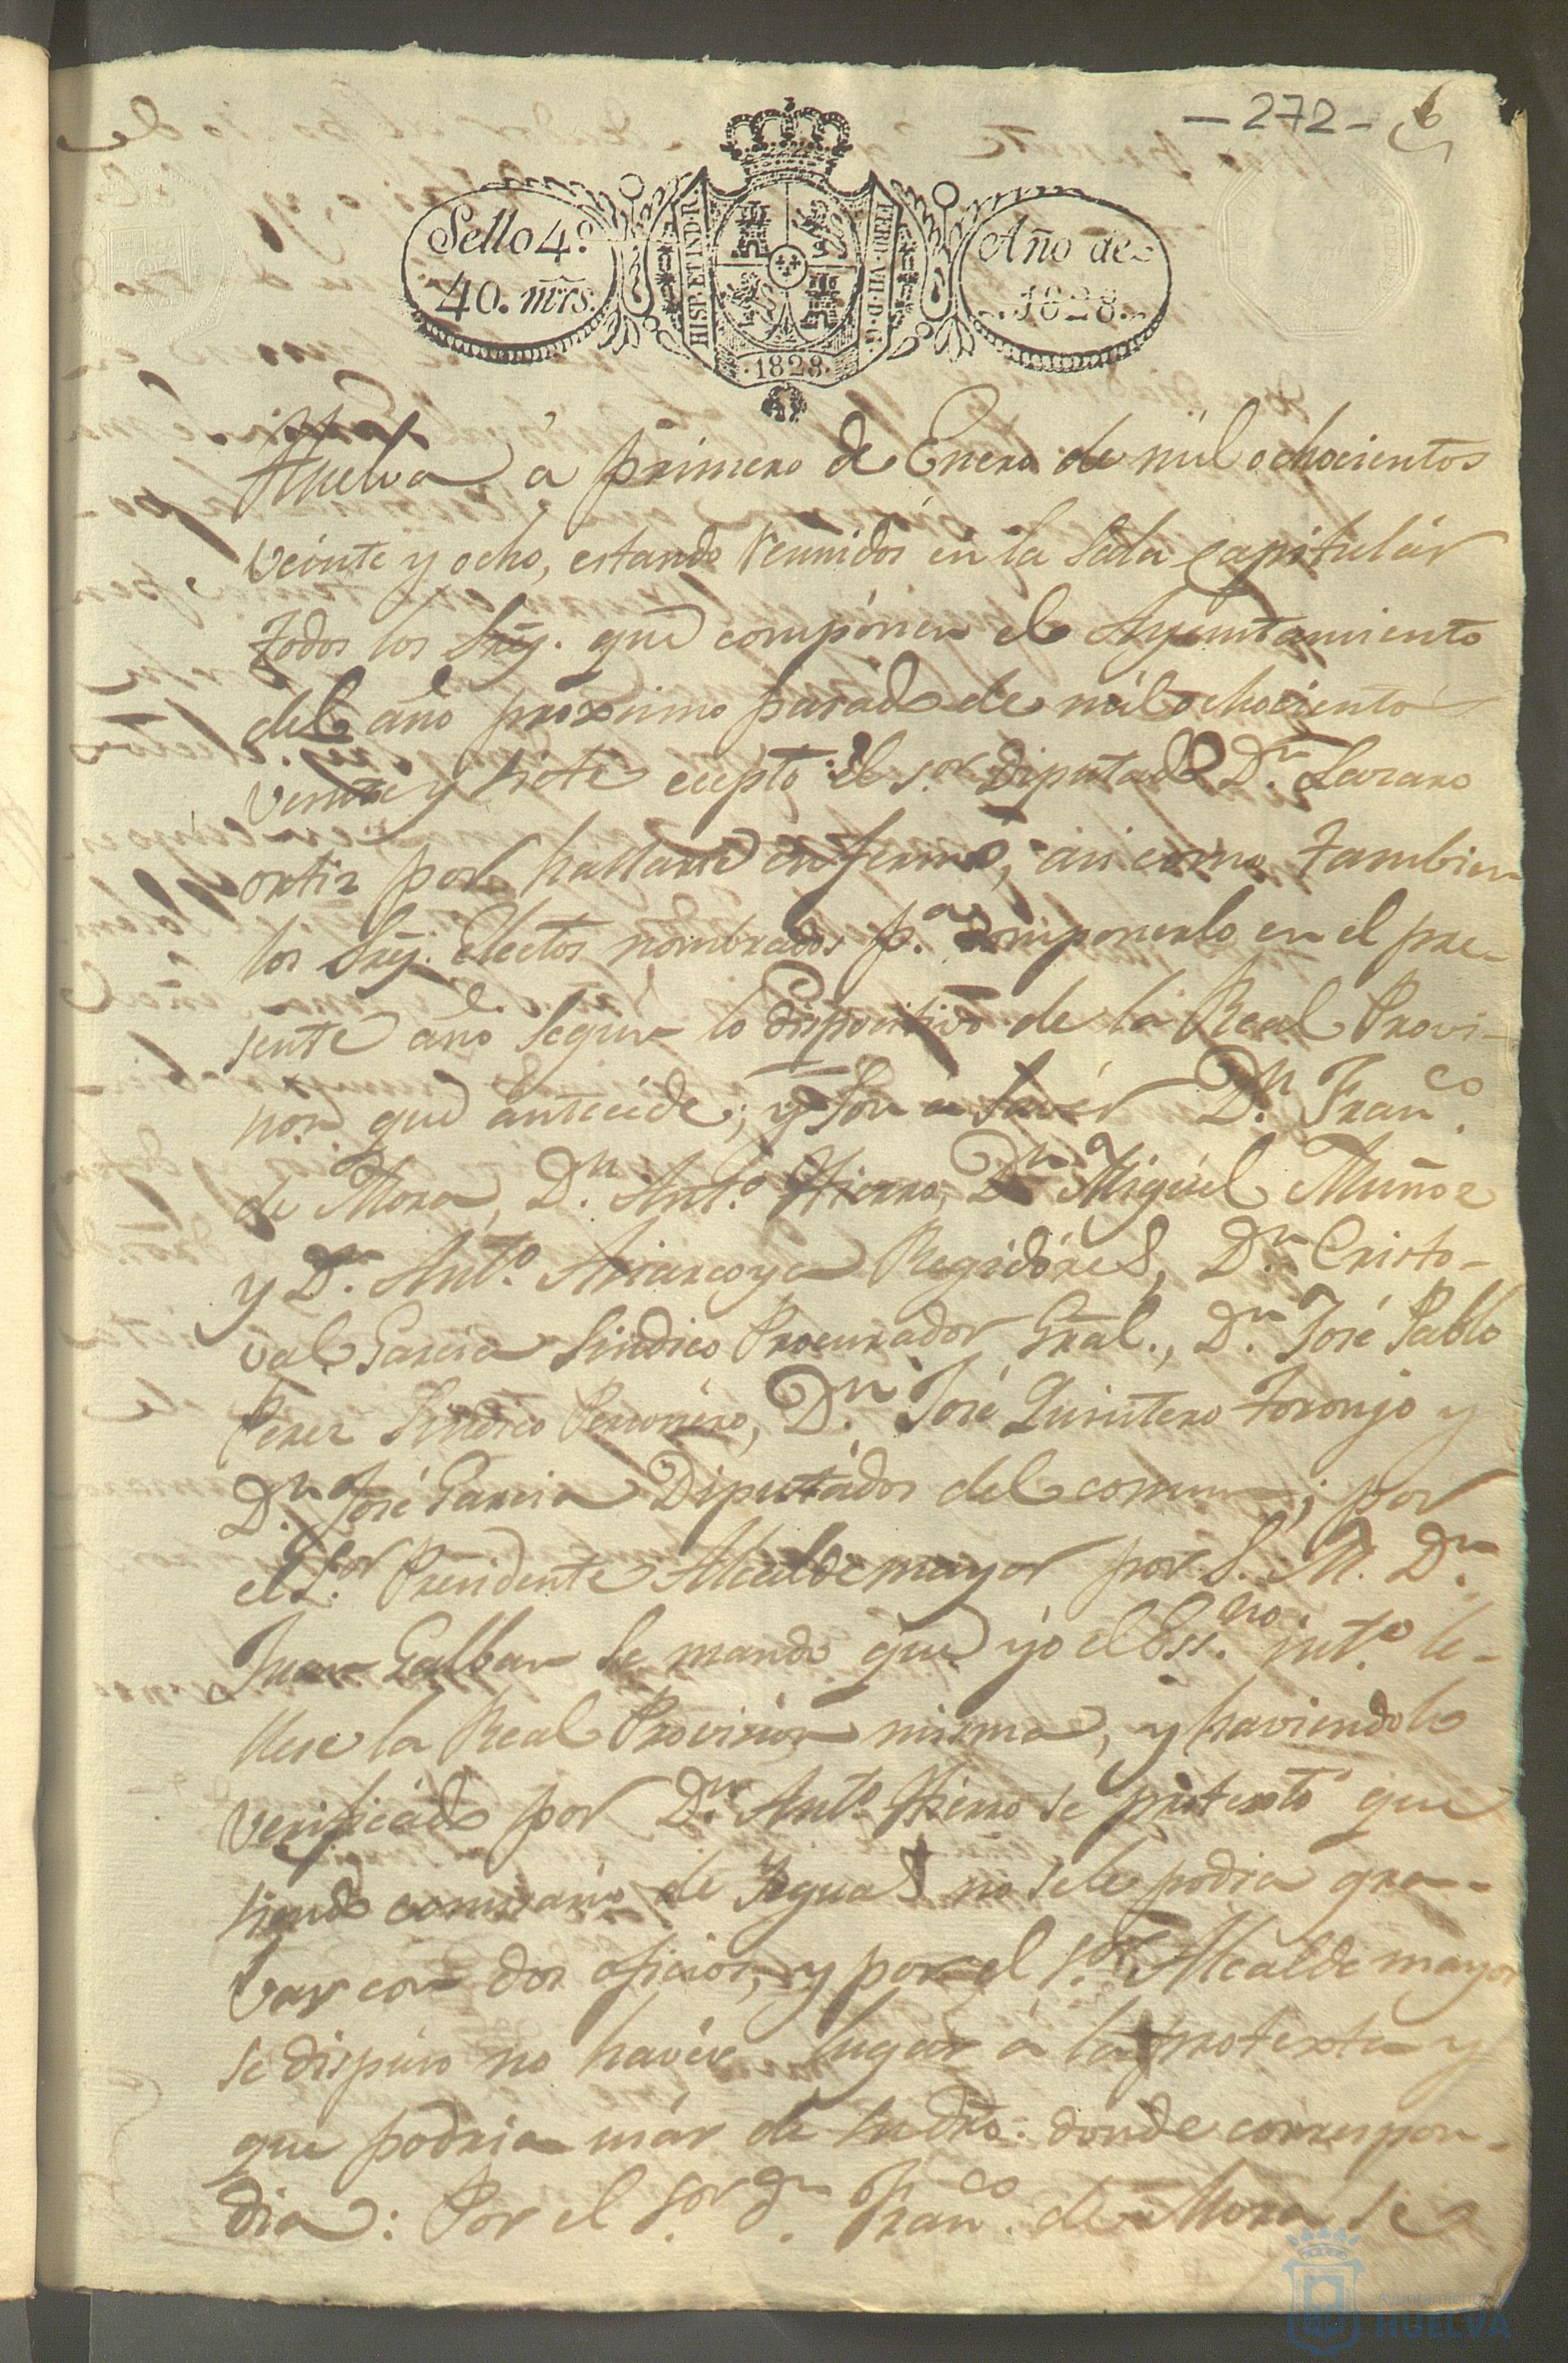 -272- 6
Sello 4º
40. mrs.
HISP. ET IND. R.
FERD. VII. D. G.
1828.
Año de
1828.
Huelva à primero de Enero de mil ochocientos
veinte y ocho, estando reunidos en la Sala capitulár
todos los Sres. que compónen el Ayuntamiento
del año proximo pasado de mil ochociento
veinte y siete ecepto el sor. Diputado Dn. Lazaro
ortiz por hallarse enfermo, asi como tambien
los Sres. electos nombrados pa. componerlo en el pre-
sente año segun lo dispositivo de la Real Provi-
non que antecede; y son a saver Dn. Franco.
de Mora, Dn. Anto. Hierro, Dn. Miguel Muñoz
y Dn. Anto. Regidóres, Dn. Cristo-
val Garcia Sindico Procurador Gral., Dn. José Pablo
Perez Sindico Personéro, Dn. José Quintero Toronjo y
Dn. José Garcia Diputádos del comun; por
el Sor. Presidente Alcalde mayor por S. M. Dn.
Juan Galban se mando que yo el Essno. into. le-
llese la Real Provision misma, y haviendolo
verificado por Dn. Anto. Hierro se protexto que
siendo comisario de Yeguas no sele podia gra-
var con dos oficios, y por el sor. Alcalde mayor
se dispuso no havér lugar à la protexta y
que podria usár de su dro. donde correspon-
dia: Por el Sor. Dn. Franco. de Mora se
Ayuntamiento
HUELVA